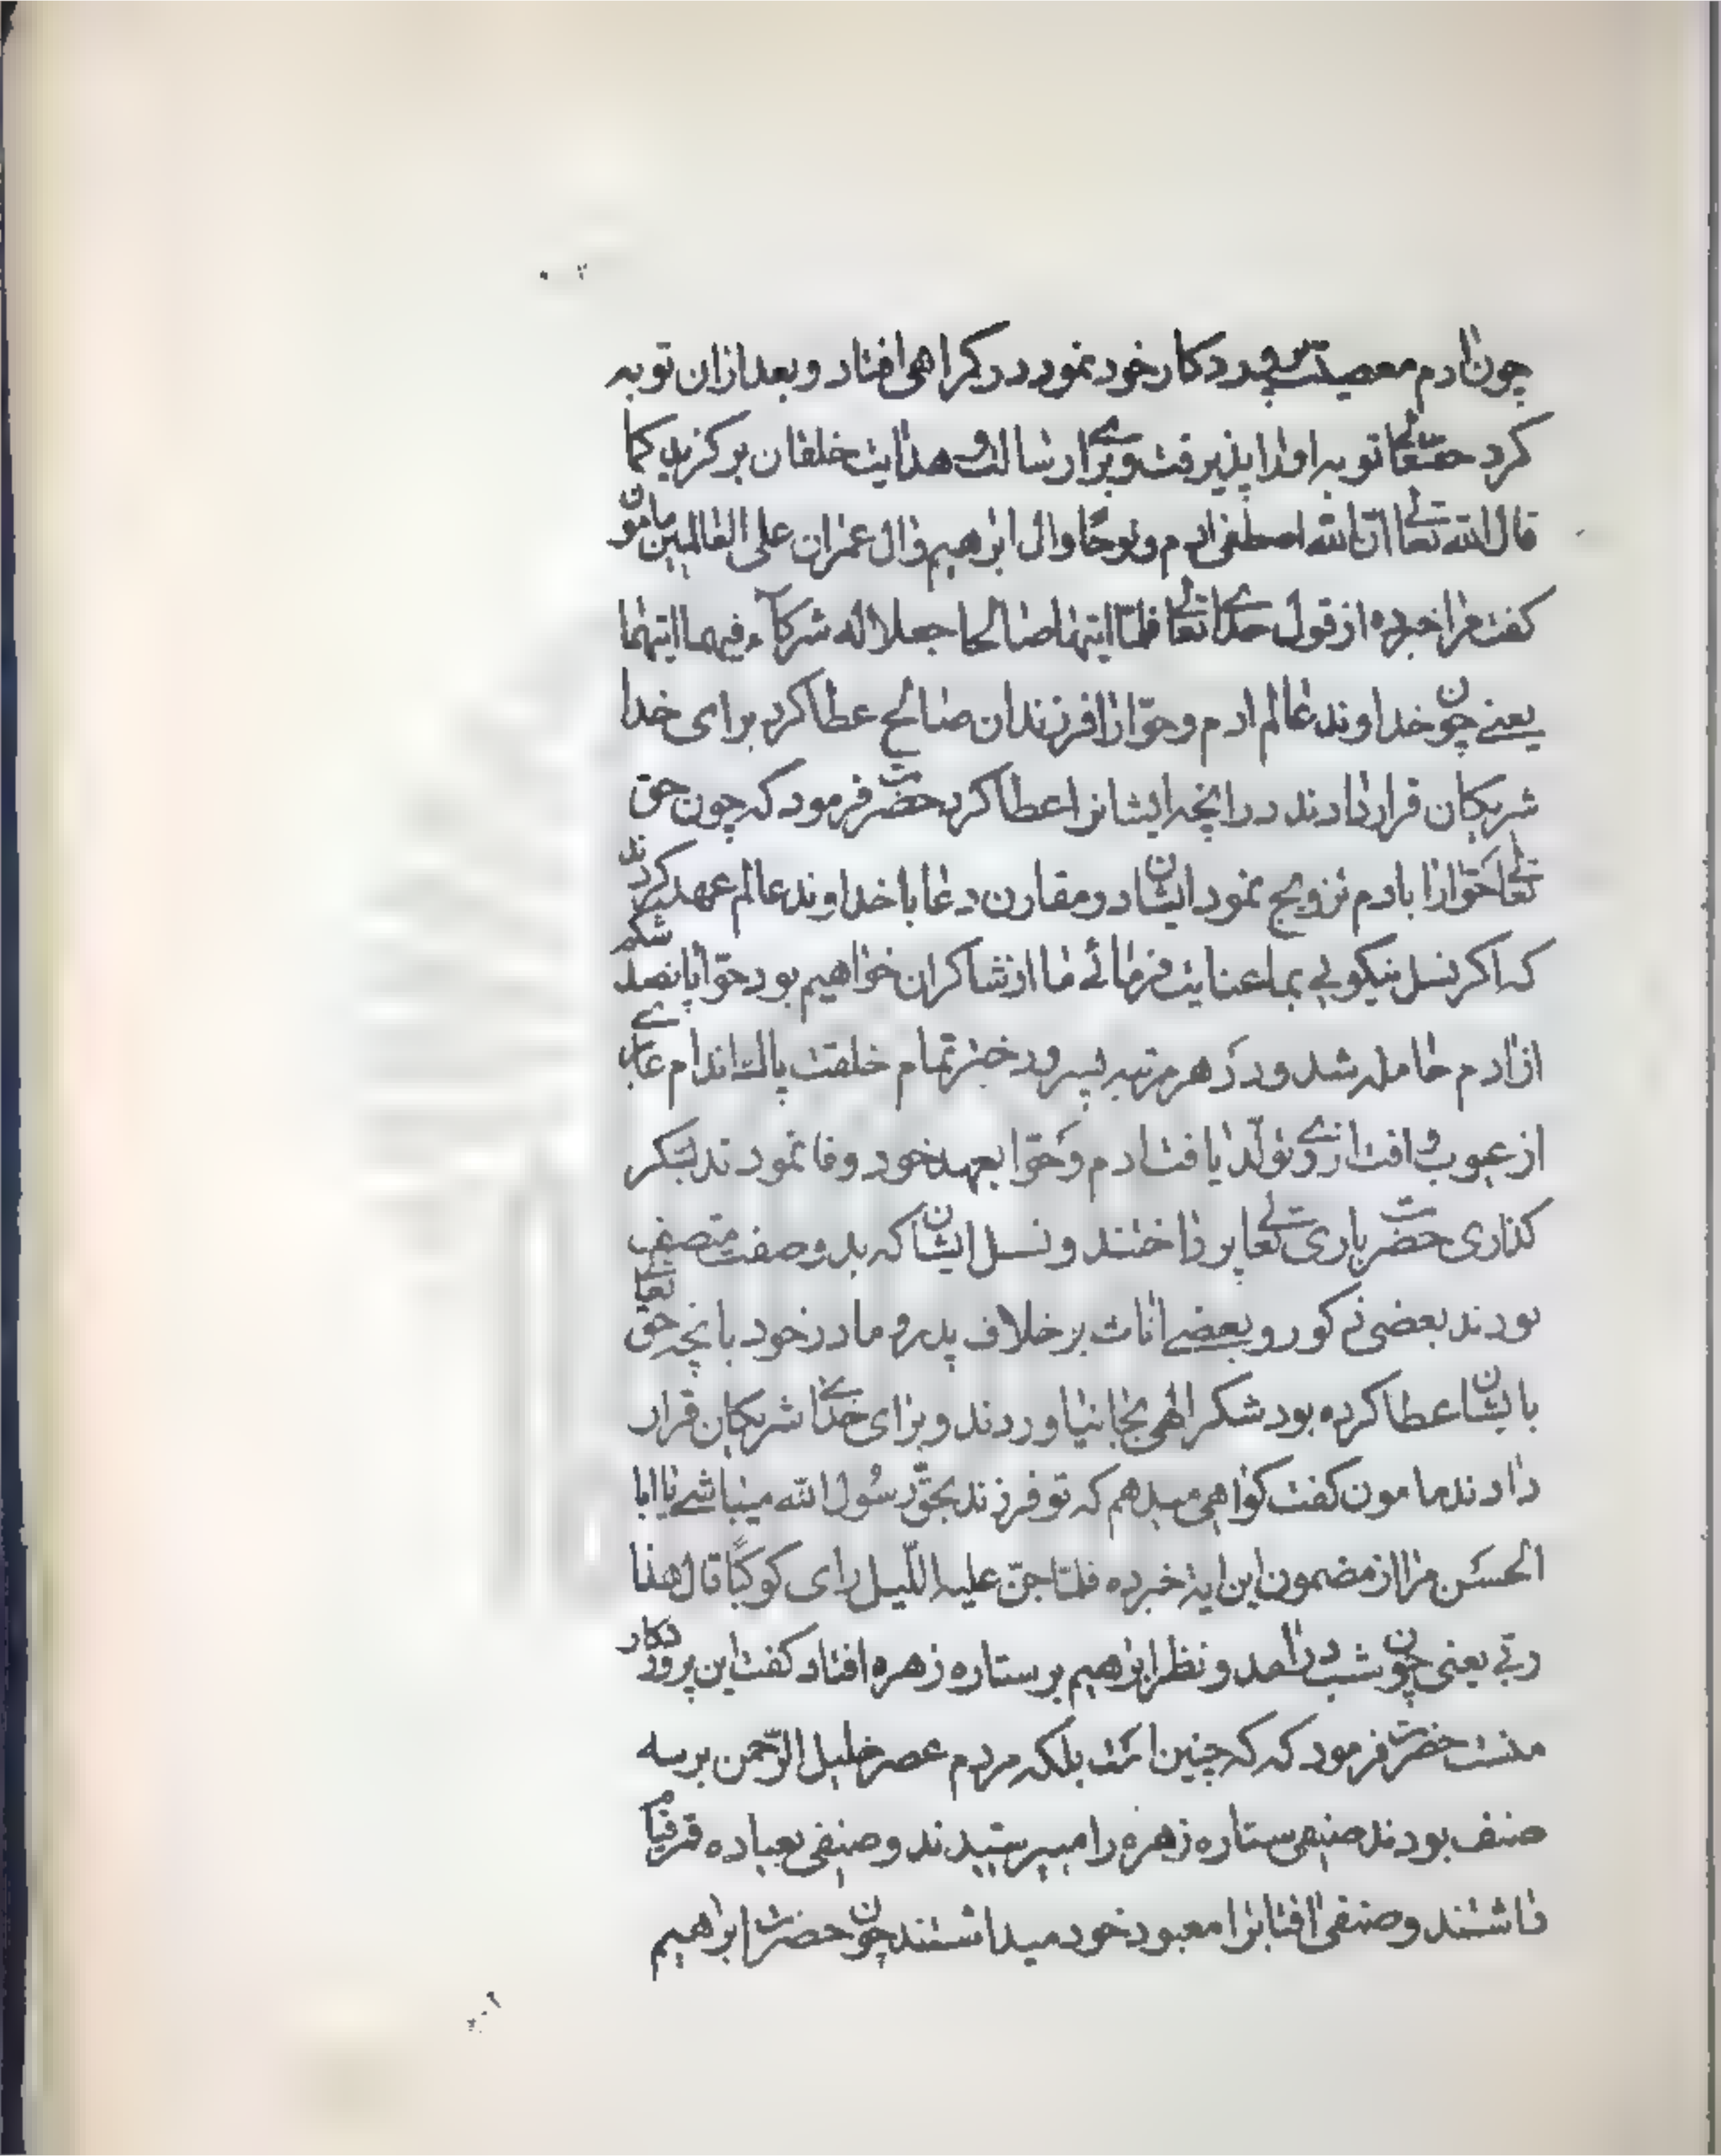 چون ادم معصیت پرورد کار خود نمود در کمراهی افتاد و بعد ازان توبه
کرد حقتعالی توبه او را پذیرفت و برای رسالت و هدایت خلقان بر کزید کما
قال الله تعالی ان الله اصطفی ادم و نوحًا وال ابرهیم وال عمران علی العالمین مامون
کفت مرا خبر ده از قول خدای تعالی فلمّا اتیهما صالحا جعلا له شرکآء فیهما اتیهما
یعنے چون خداوند عالم ادم و حوّا را فرزندان صالح عطا کرد برای خدا
شریکان قرار دادند در انچه ایشانرا عطا کرد حضرت فرمود که چون حق
تعالی حوّا را با ادم تزویج نمود ایشان در مقارن دعا با خداوند عالم عهد کردند
که اکر نسل نیکویی بما عنایت فرمائے ما از شاکران خواهیم بود حوّا پانصد شکم
از ادم حامله شد و در هر مرتبه پسر و دختر تمام خلقت پاك اندام عاری
از عیوب و افت از وی تولّد یافت ادم و حوّا بعهد خود وفا نمودند بشکر
کذاری حضرت باری تعالی پرداختند و نسل ایشان که بدو صفت متصف
بودند بعضی ذکور و بعضے اناث بر خلاف پدر و مادر خود بانچه حق تعالی
بایشان عطا کرده بود شکر الهی بجا نیاوردند و برای خدای شریکان قرار
دادند مامون کفت کواهی میدهم که تو فرزند بحقّ رسُول الله میباشے یا ابا
الحسَن مرا از مضمون این ایة خبر ده فلمّا جنّ علیه اللّیل رای کوکبًا قال هذا
ربّی یعنی چون شب در امد و نظر ابرهیم بر ستاره زهره افتاد کفت این پروردکار
منست حضرت فرمود که که چنین است بلکه مردم عصر خلیل الرّحمن بر سه
صنف بودند صنفی ستاره زهره را میپرستیدند و صنفی بعباده قمر قیام
داشتند و صنفی افتابرا معبود خود میداشتند چون حضرت ابراهیم